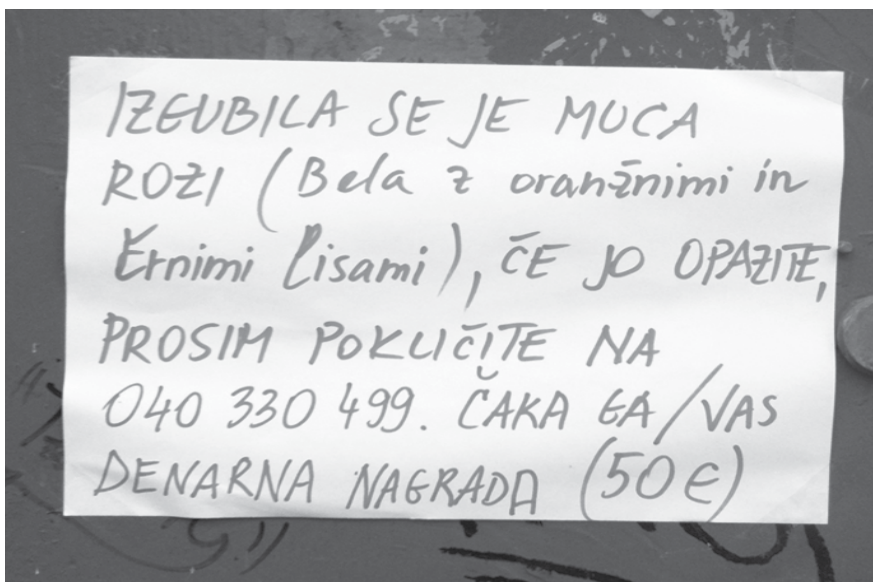 IZGUBILA SE JE MUCA
ROZI (Bela z oranžnimi in
črnimi lisami), ČE JO OPAZITE,
PROSIM POKLIČITE NA
040 330 499. ČAKA GA/VAS
DENARNA NAGRADA (50€)